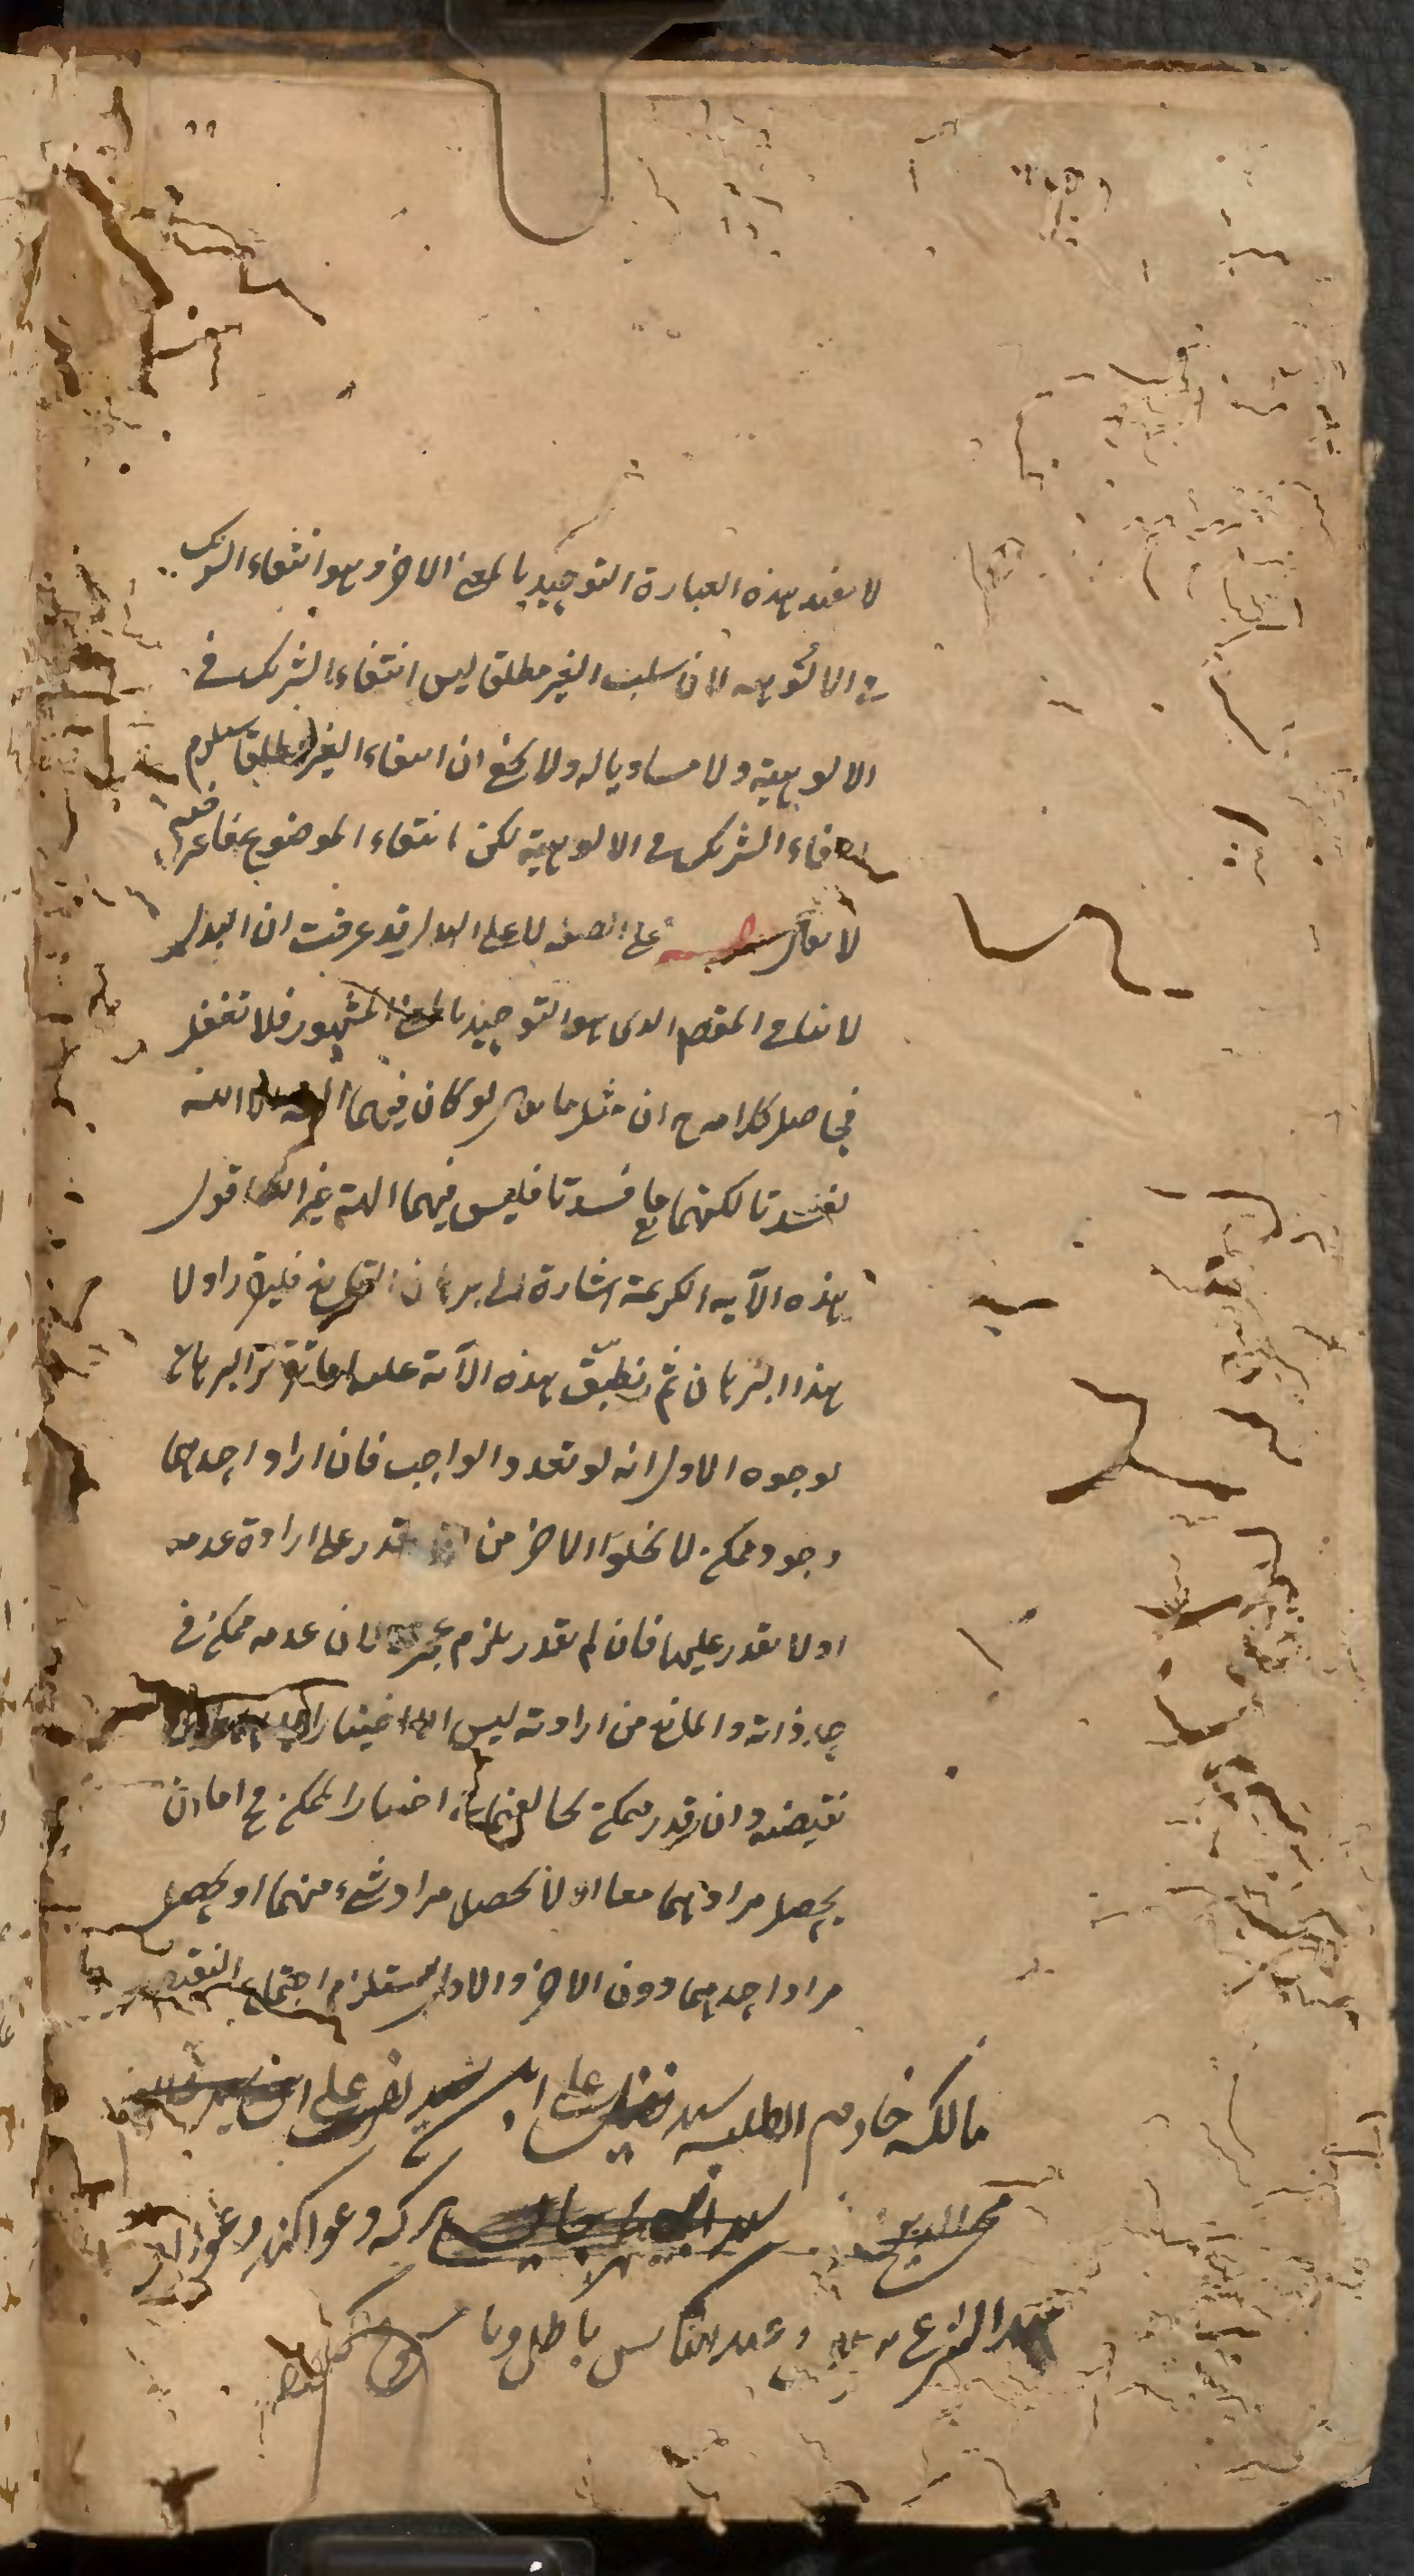 لا يفيد هذه العبارة التوحيد بالمعنى الاخر وهو انتفاء الشريك
في الالوهيه لان سلب الغير مطلقا ليس انتفاء الشريك في
الالوهية ولا مساويا له ولا يخفى ان انتفاء الغير مطلقا يستلزم
انتفاء الشريك في الالوهية لكن انتفاء الموضوع
لا يقال على الصفه لا على البدل قد عرفت ان البدل
لا ينافي المقصد الذي هو التوحيد بالمعنى المشهور فلا تغفل
فحاصل كلامه ان مثل ما يقال لو كان فيهما الهة الا الله
لفسدتا لكنهما ما فسدتا فليس فيهما الهة غير الله اقول
هذه الآيه الكريمة اشارة الى برهان التمانع فليقرر اولا
هذا البرهان ثم نطبّق هذه الآية عليه اما تقرير البرهان
لوجوه الاول انه لو تعدد الواجب فان اراد احدهما
وجود ممكن لا يخلوا الاخر من ان يقدر على ارادة عدمه
او لا يقدر عليها فان لم يقدر يلزم عجزه لان عدمه ممكن في
حد ذاته والمانع من ارادته ليس الا اختيار
نقيضه وان قدر ممكن اختيار الممكن ح اما ان
يحصل مرادهما معا او لا يحصل مراد شيء منهما او يحصل
مراد احدهما دون الاخر والاول يستلزم اجتماع النقيضين
مالكه خادم الطلبه سيد علي ابن سيد علي
سيد هر كه دعوا كند دعواى
عند الشرع وعند الناس باطل وبا